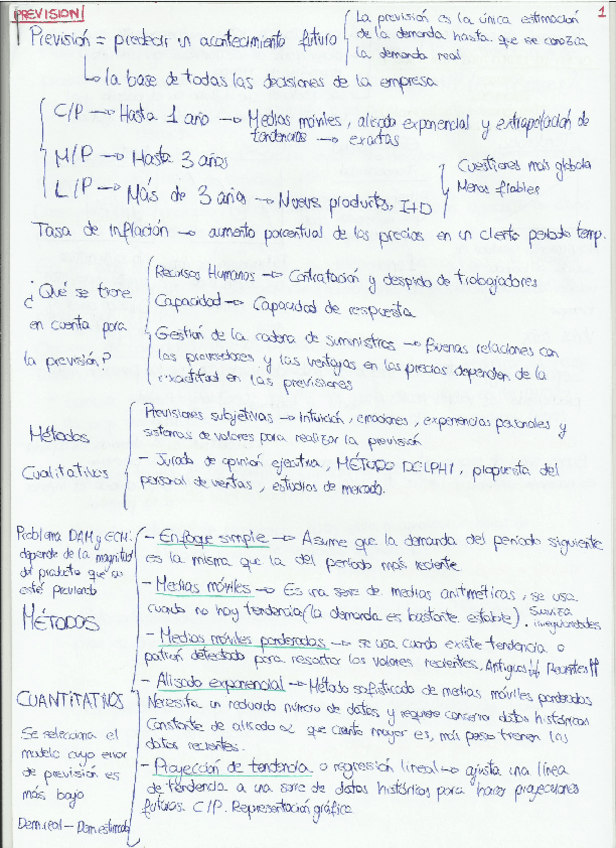 PREVISION
1
Previsión = predecir un acontecimiento futuro
La previsión es la única estimación
de la demanda hasta que se conozca
la demanda real
la base de todas las decisiones de la empresa
C/P → Hasta 1 año → Medias móviles, alisado exponencial y extrapolación de
tendencias → exactas
M/P → Hasta 3 años
L/P → Más de 3 años → Nuevos productos, I+D
Cuestiones más globales
Menos fiables
Tasa de inflación → aumento porcentual de los precios en un cierto periodo temp.
¿Qué se tiene
en cuenta para
la previsión?
Recursos Humanos → Contratación y despido de trabajadores
Capacidad → Capacidad de respuesta
Gestión de la cadena de suministros → Buenas relaciones con
los proveedores y las ventajas en los precios dependen de la
exactitud en las previsiones
Métodos
Cualitativos
Previsiones subjetivas → Intuición, emociones, experiencias personales y
sistemas de valores para realizar la previsión
- Jurado de opinión ejecutiva, MÉTODO DELPHI, propuesta del
personal de ventas, estudios de mercado.
Problema DAM y ECM:
depende de la magnitud
del producto que se
esté previendo
MÉTODOS
CUANTITATIVOS
Se selecciona el
modelo cuyo error
de previsión es
más bajo
Dem.real - Dem.estimada
- Enfoque simple → Asume que la demanda del período siguiente
es la misma que la del período más reciente
- Medias móviles → Es una serie de medias aritméticas, se usa
cuando no hay tendencia (la demanda es bastante estable). Suaviza
irregularidades
- Medias móviles ponderadas → se usa cuando existe tendencia o
patrón detectado para resaltar los valores recientes, Antiguos ↓↓ Recientes ↑↑
- Alisado exponencial → Método sofisticado de medias móviles ponderadas
Necesita un reducido número de datos y requiere conservar datos históricos
Constante de alisado α que cuanto mayor es, más peso tienen los
datos recientes.
- Proyección de tendencia o regresión lineal → ajusta una línea
de tendencia a una serie de datos históricos para hacer proyecciones
futuras. C/P. Representación gráfica